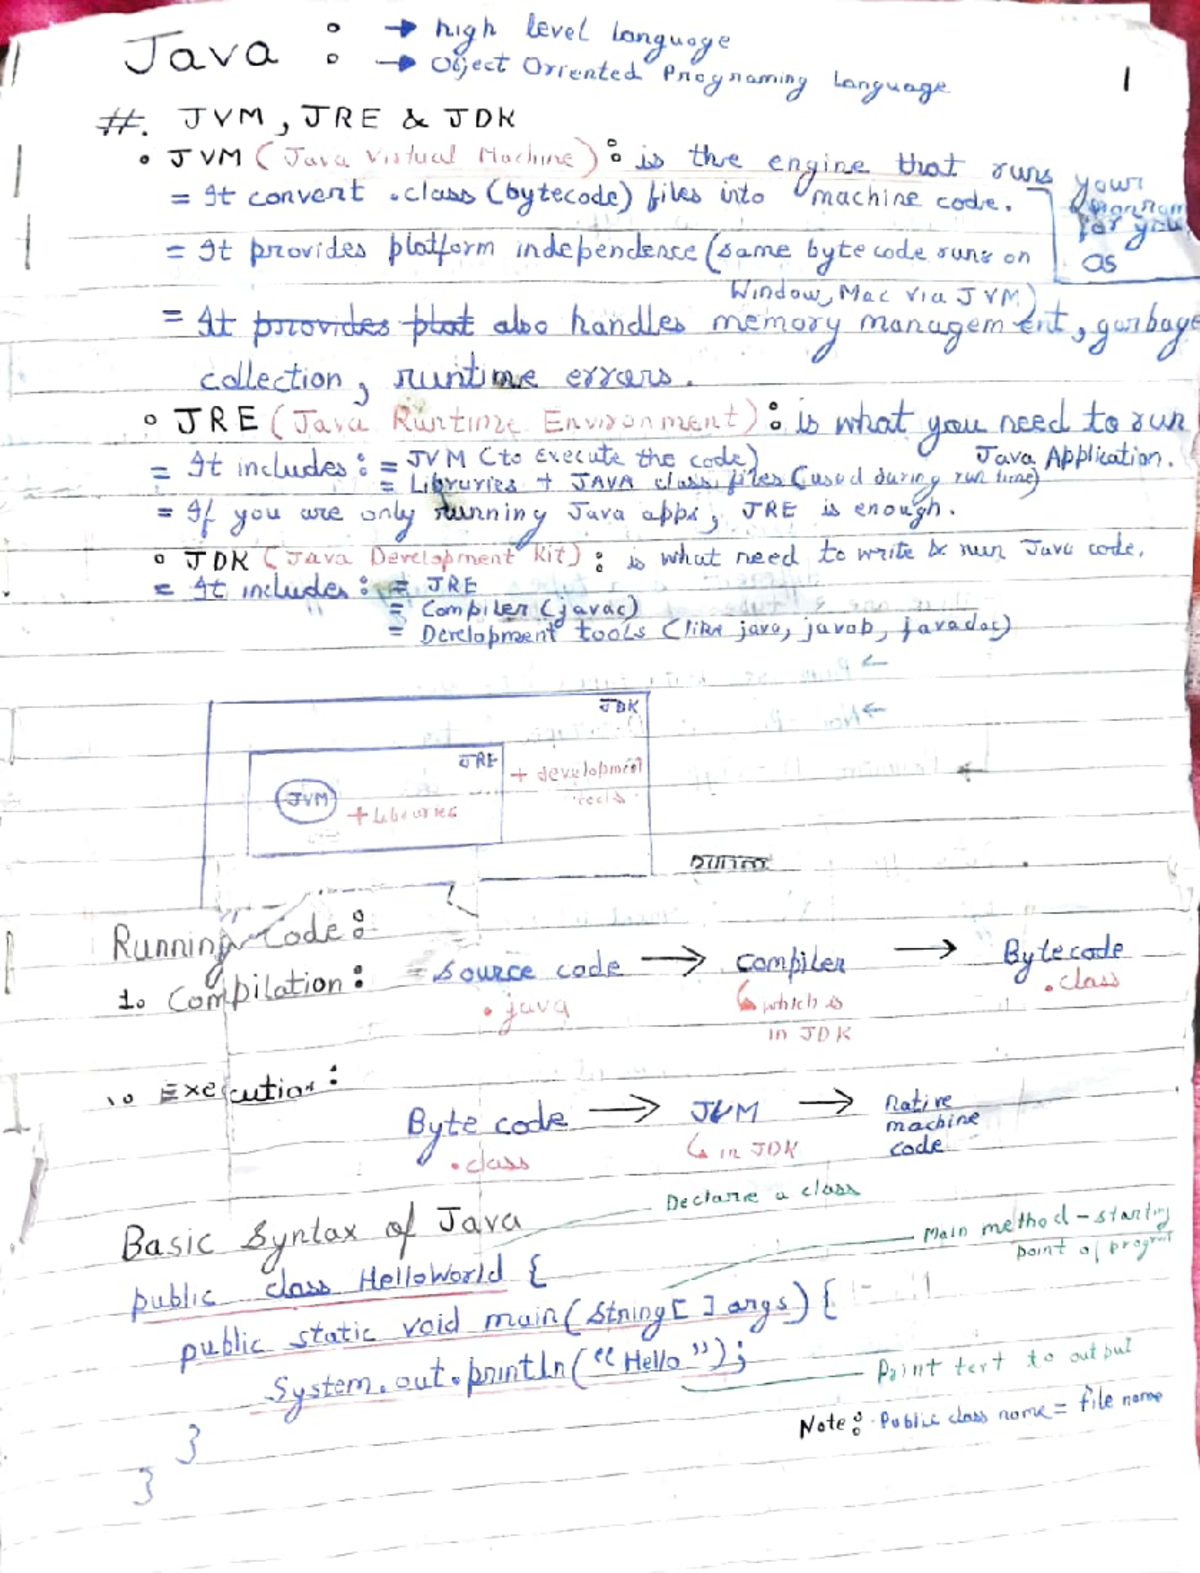 Java : → high level language
: → Object Oriented Programing Language
1
#. JVM, JRE & JDK
• JVM (Java Virtual Machine) : is the engine that runs your program for you as
= It convert .class (bytecode) files into machine code.
= It provides platform independence (same byte code runs on
Window, Mac via JVM)
= It provides plat also handles memory management, garbage
collection, runtime errors.
• JRE (Java Runtime Environment) : is what you need to run
Java Application.
= It includes : = JVM (to execute the code)
= Libruries + JAVA class files (used during run time)
= If you are only running Java apps, JRE is enough.
• JDK (Java Development Kit) : is what need to write & run Java code.
= It includes : = JRE
= Compiler (javac)
= Development tools (like java, javab, javadoc)
JDK
JRE
+ development
tools
JVM
+ Libruries
Running Code :
1. Compilation : = Source code → compiler → Bytecode
.java
which is
in JDK
.class
1. Execution :
Byte code → JVM → Native
machine
code
.class
↳ in JDK
Declare a class
Basic Syntax of Java
Main method - starting
point of program
public class HelloWorld {
public static void main(String[ ] args) {
System.out.println(“Hello”);
Print text to output
Note : Public class name = file name
}
}